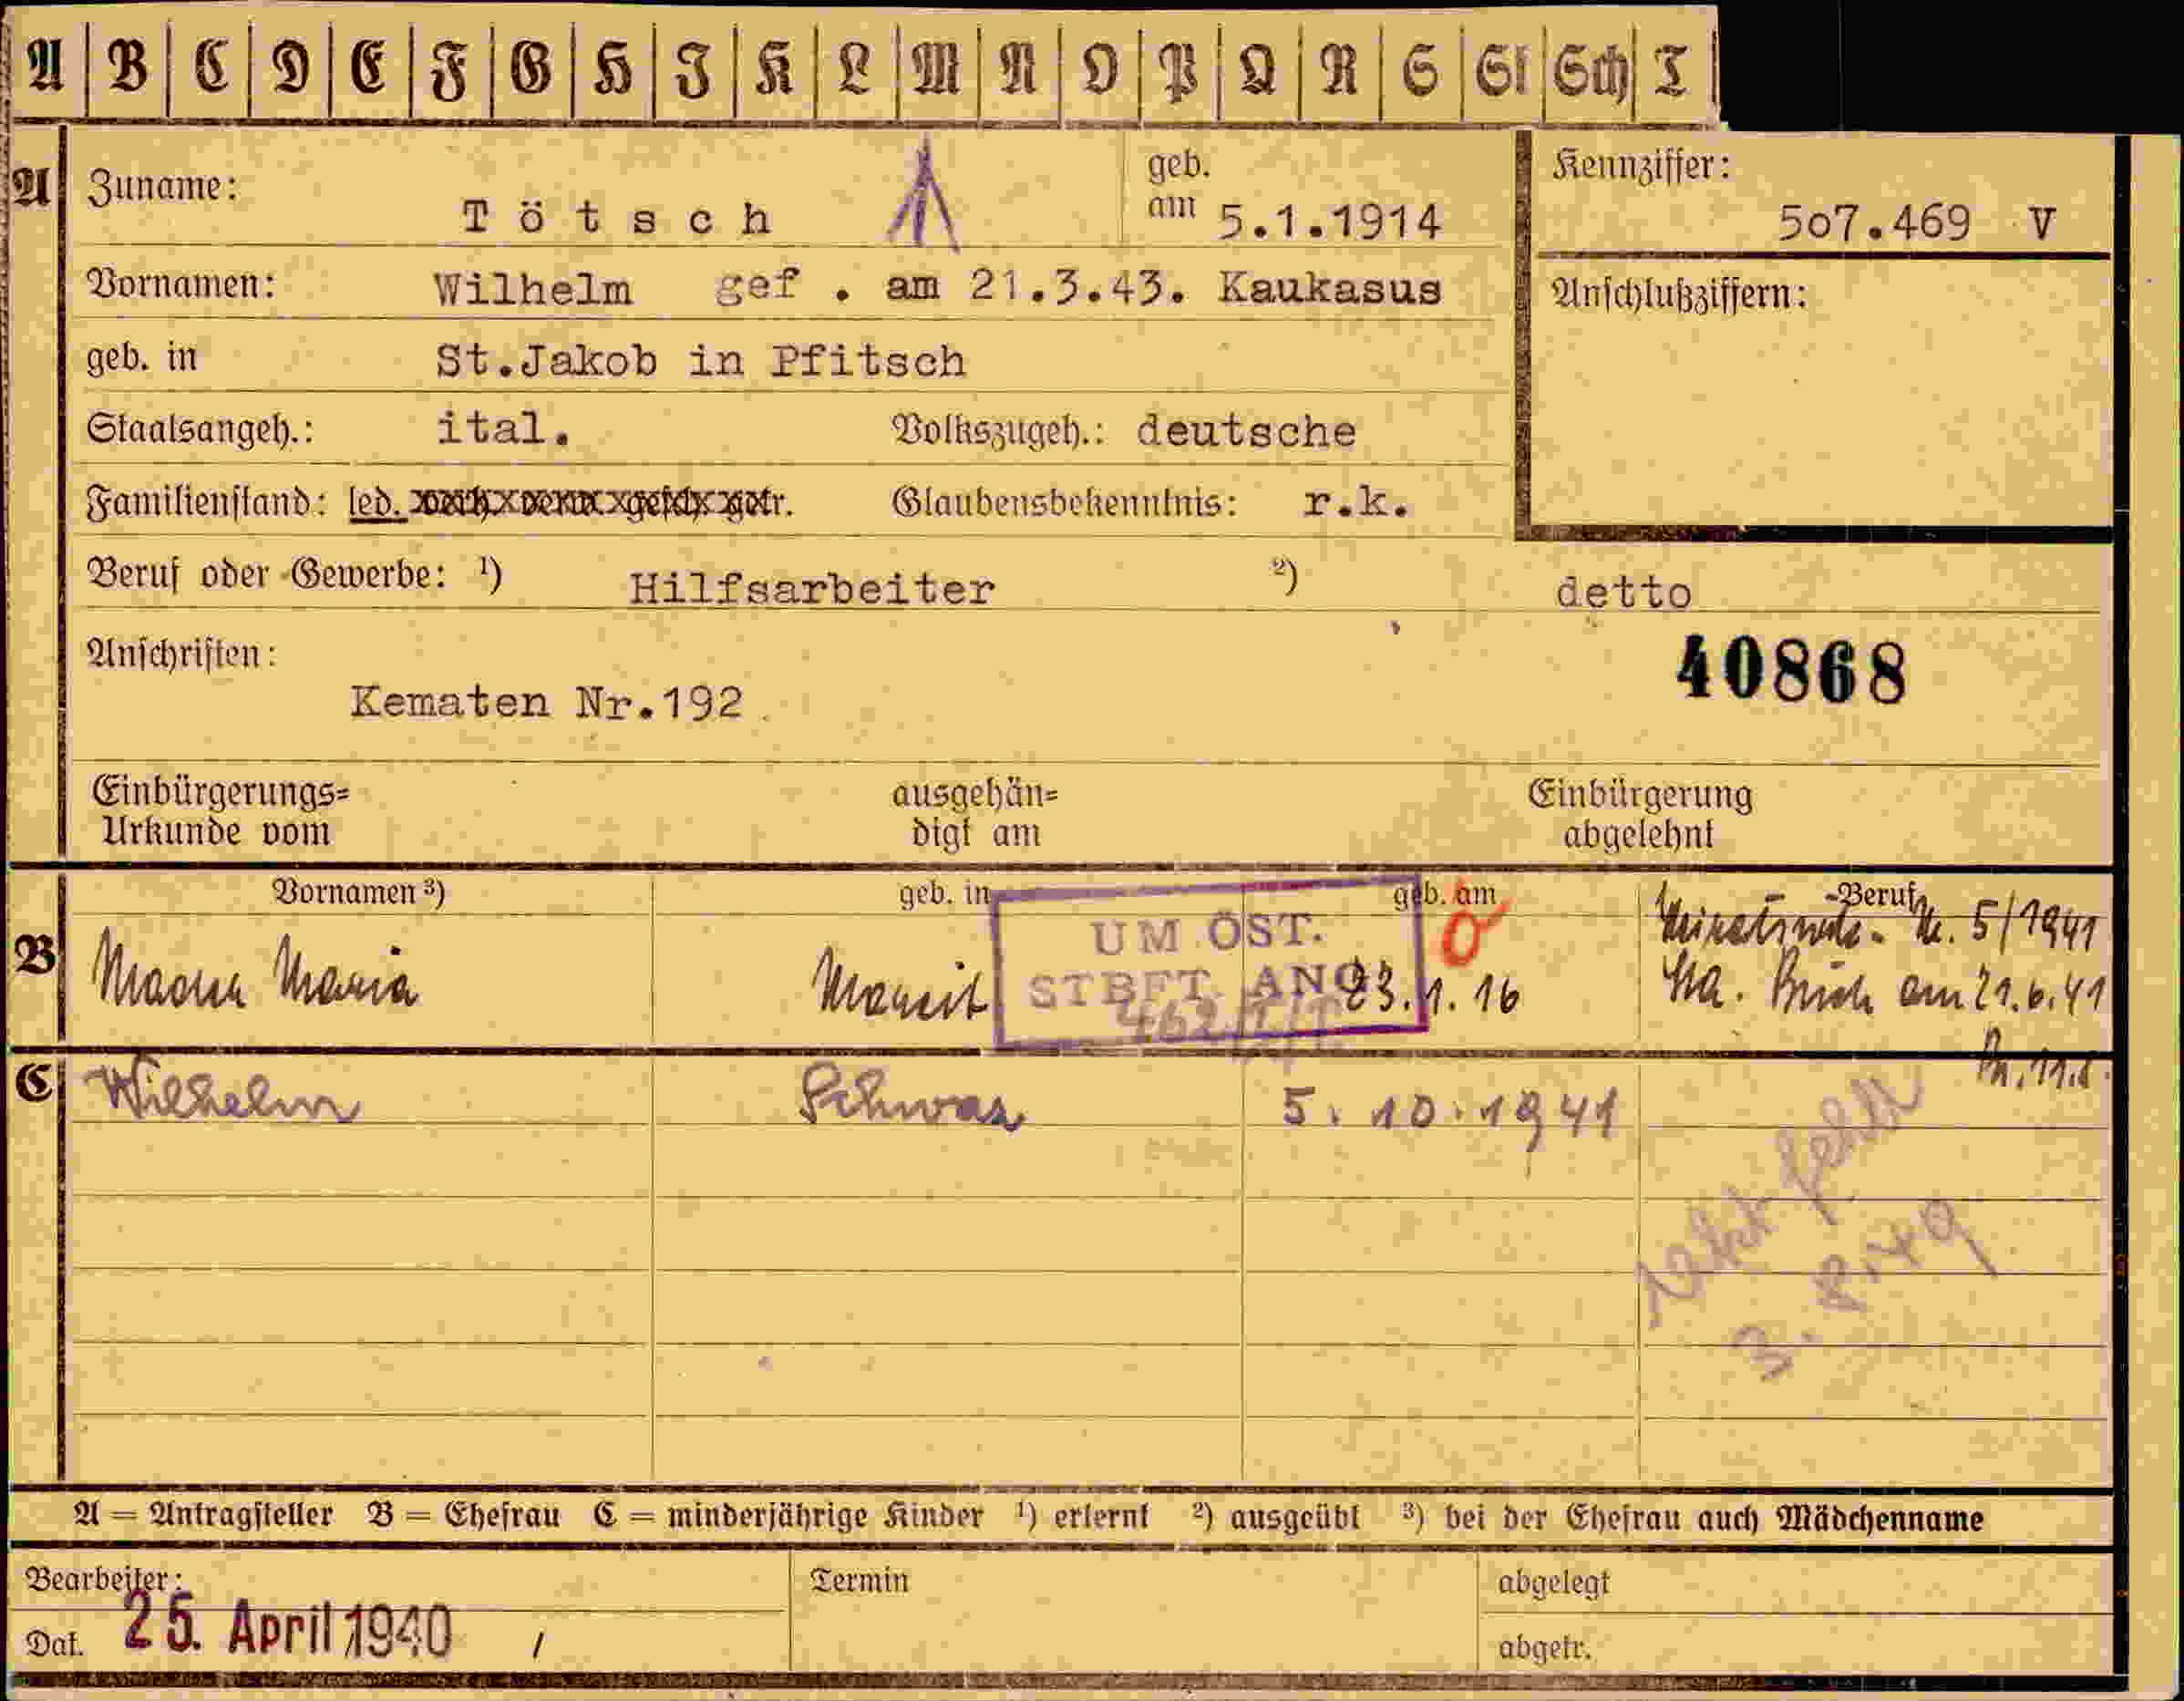 A B C D E F G H I K L M N O P Q R S St Sch T
A Zuname: Tötsch geb. am 5.1.1914 Kennziffer: 507.469 V
Vornamen: Wilhelm gef . am 21.3.43. Kaukasus Anschlußziffern:
geb. in St.Jakob in Pfitsch
Staatsangeh.: ital. Volkszugeh.: deutsche
Familienstand: led. verh. verw. gesch. getr. Glaubensbekenntnis: r.k.
Beruf oder Gewerbe: 1) Hilfsarbeiter 2) detto
Anschriften: 40868
Kematen Nr.192
Einbürgerungs= ausgehän= Einbürgerung
Urkunde vom digt am abgelehnt
Vornamen 3) geb. in geb. am Beruf
UM ÖST.
STBFT. ANG
B Maria Mareit 23.1.16
Nr. 5/1941
am 21.6.41
C Wilhelm Schwaz 5.10.1941
fehlt
3.8.49
A = Antragsteller B = Ehefrau C = minderjährige Kinder 1) erlernt 2) ausgeübt 3) bei der Ehefrau auch Mädchenname
Bearbeiter: Termin abgelegt
Dat. 25. April 1940 / abgetr.